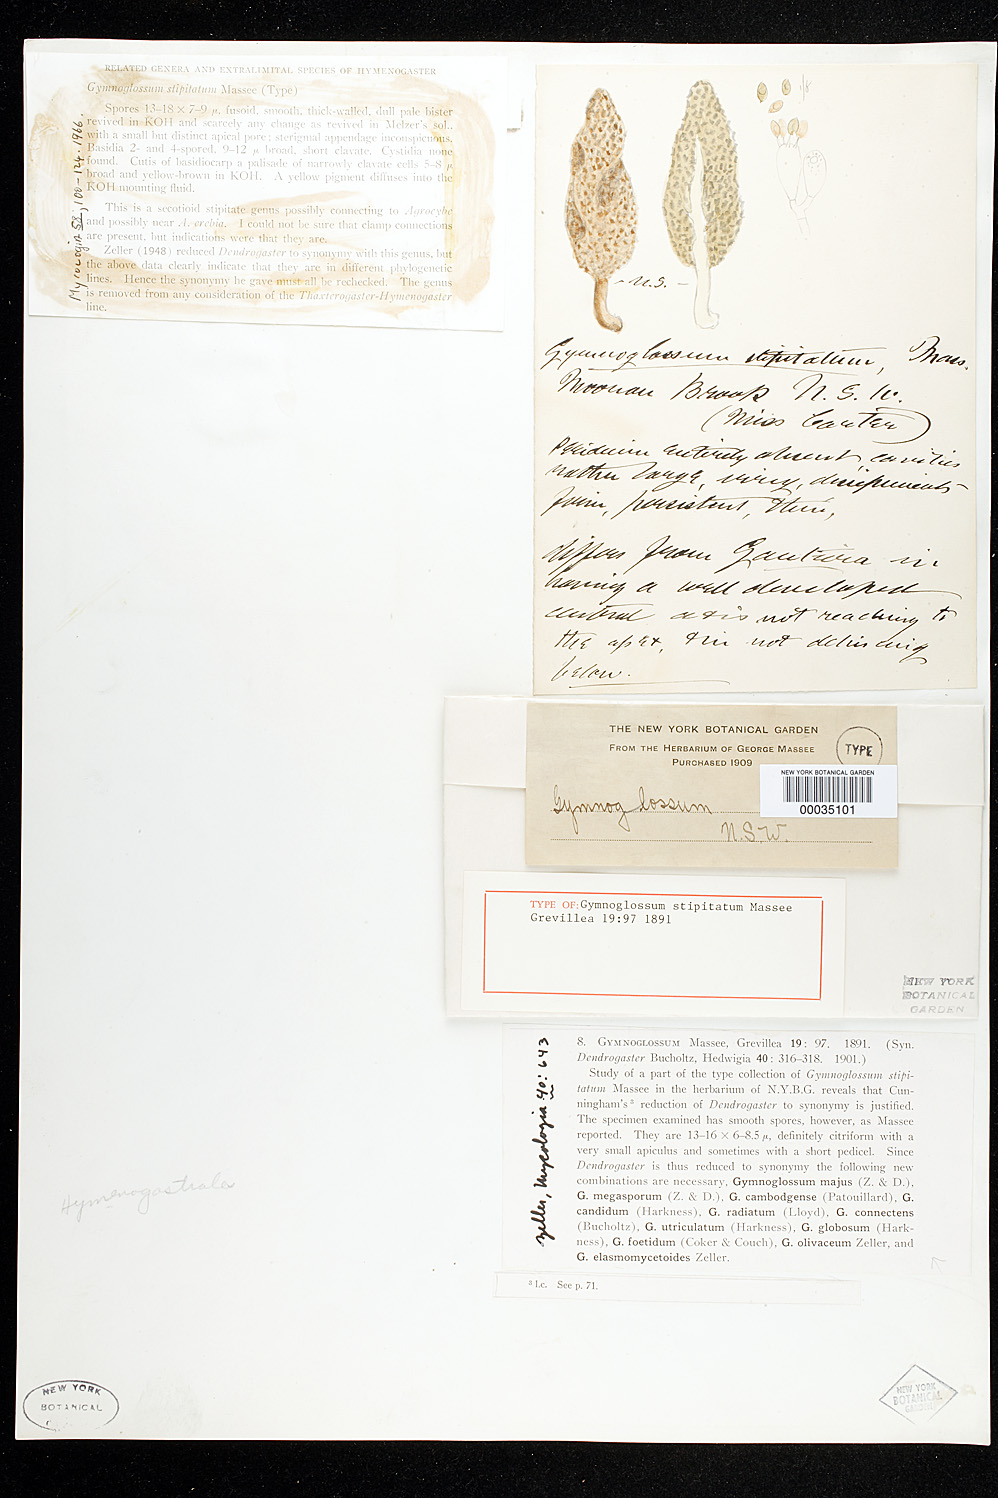 RELATED GENERA AND EXTRALIMITAL SPECIES OF HYMENOGASTER
Gymnoglossum stipitatum Massee (Type)
Spores 13–18 × 7–9 μ, fusoid, smooth, thick-walled, dull pale bister
revived in KOH and scarcely any change as revived in Melzer's sol.,
with a small but distinct apical pore; sterigmal appendage inconspicuous.
Basidia 2- and 4-spored, 9–12 μ broad, short clavate. Cystidia none
found. Cutis of basidiocarp a palisade of narrowly clavate cells 5–8 μ
broad and yellow-brown in KOH. A yellow pigment diffuses into the
KOH mounting fluid.
This is a secotioid stipitate genus possibly connecting to Agrocybe
and possibly near A. erebia. I could not be sure that clamp connections
are present, but indications were that they are.
Zeller (1948) reduced Dendrogaster to synonymy with this genus, but
the above data clearly indicate that they are in different phylogenetic
lines. Hence the synonymy he gave must all be rechecked. The genus
is removed from any consideration of the Thaxterogaster-Hymenogaster
line.
Mycologia 58; 100–124. 1966.
N.S.
Gymnoglossum stipitatum, Mass.
Moonan Brook N. S. W.
(Miss Carter)
Peridium entirely absent, cavities
rather large, dissepiments
firm, persistent, thin,
differs from Gautiera in
having a well developed
central axis not reaching to
the apex, & in not
below.
THE NEW YORK BOTANICAL GARDEN
FROM THE HERBARIUM OF GEORGE MASSEE
PURCHASED 1909
TYPE
NEW YORK BOTANICAL GARDEN
00035101
Gymnoglossum
N.S.W.
TYPE OF: Gymnoglossum stipitatum Massee
Grevillea 19:97 1891
NEW YORK
BOTANICAL
GARDEN
Zeller, Mycologia 40: 643
8. GYMNOGLOSSUM Massee, Grevillea 19: 97. 1891. (Syn.
Dendrogaster Bucholtz, Hedwigia 40: 316–318. 1901.)
Study of a part of the type collection of Gymnoglossum stipi-
tatum Massee in the herbarium of N.Y.B.G. reveals that Cun-
ningham's 3 reduction of Dendrogaster to synonymy is justified.
The specimen examined has smooth spores, however, as Massee
reported. They are 13–16 × 6–8.5 μ, definitely citriform with a
very small apiculus and sometimes with a short pedicel. Since
Dendrogaster is thus reduced to synonymy the following new
combinations are necessary, Gymnoglossum majus (Z. & D.),
G. megasporum (Z. & D.), G. cambodgense (Patouillard), G.
candidum (Harkness), G. radiatum (Lloyd), G. connectens
(Bucholtz), G. utriculatum (Harkness), G. globosum (Hark-
ness), G. foetidum (Coker & Couch), G. olivaceum Zeller, and
G. elasmomycetoides Zeller.
3 l.c. See p. 71.
Hymenogastrales
NEW YORK
BOTANICAL
NEW YORK
BOTANICAL
GARDEN